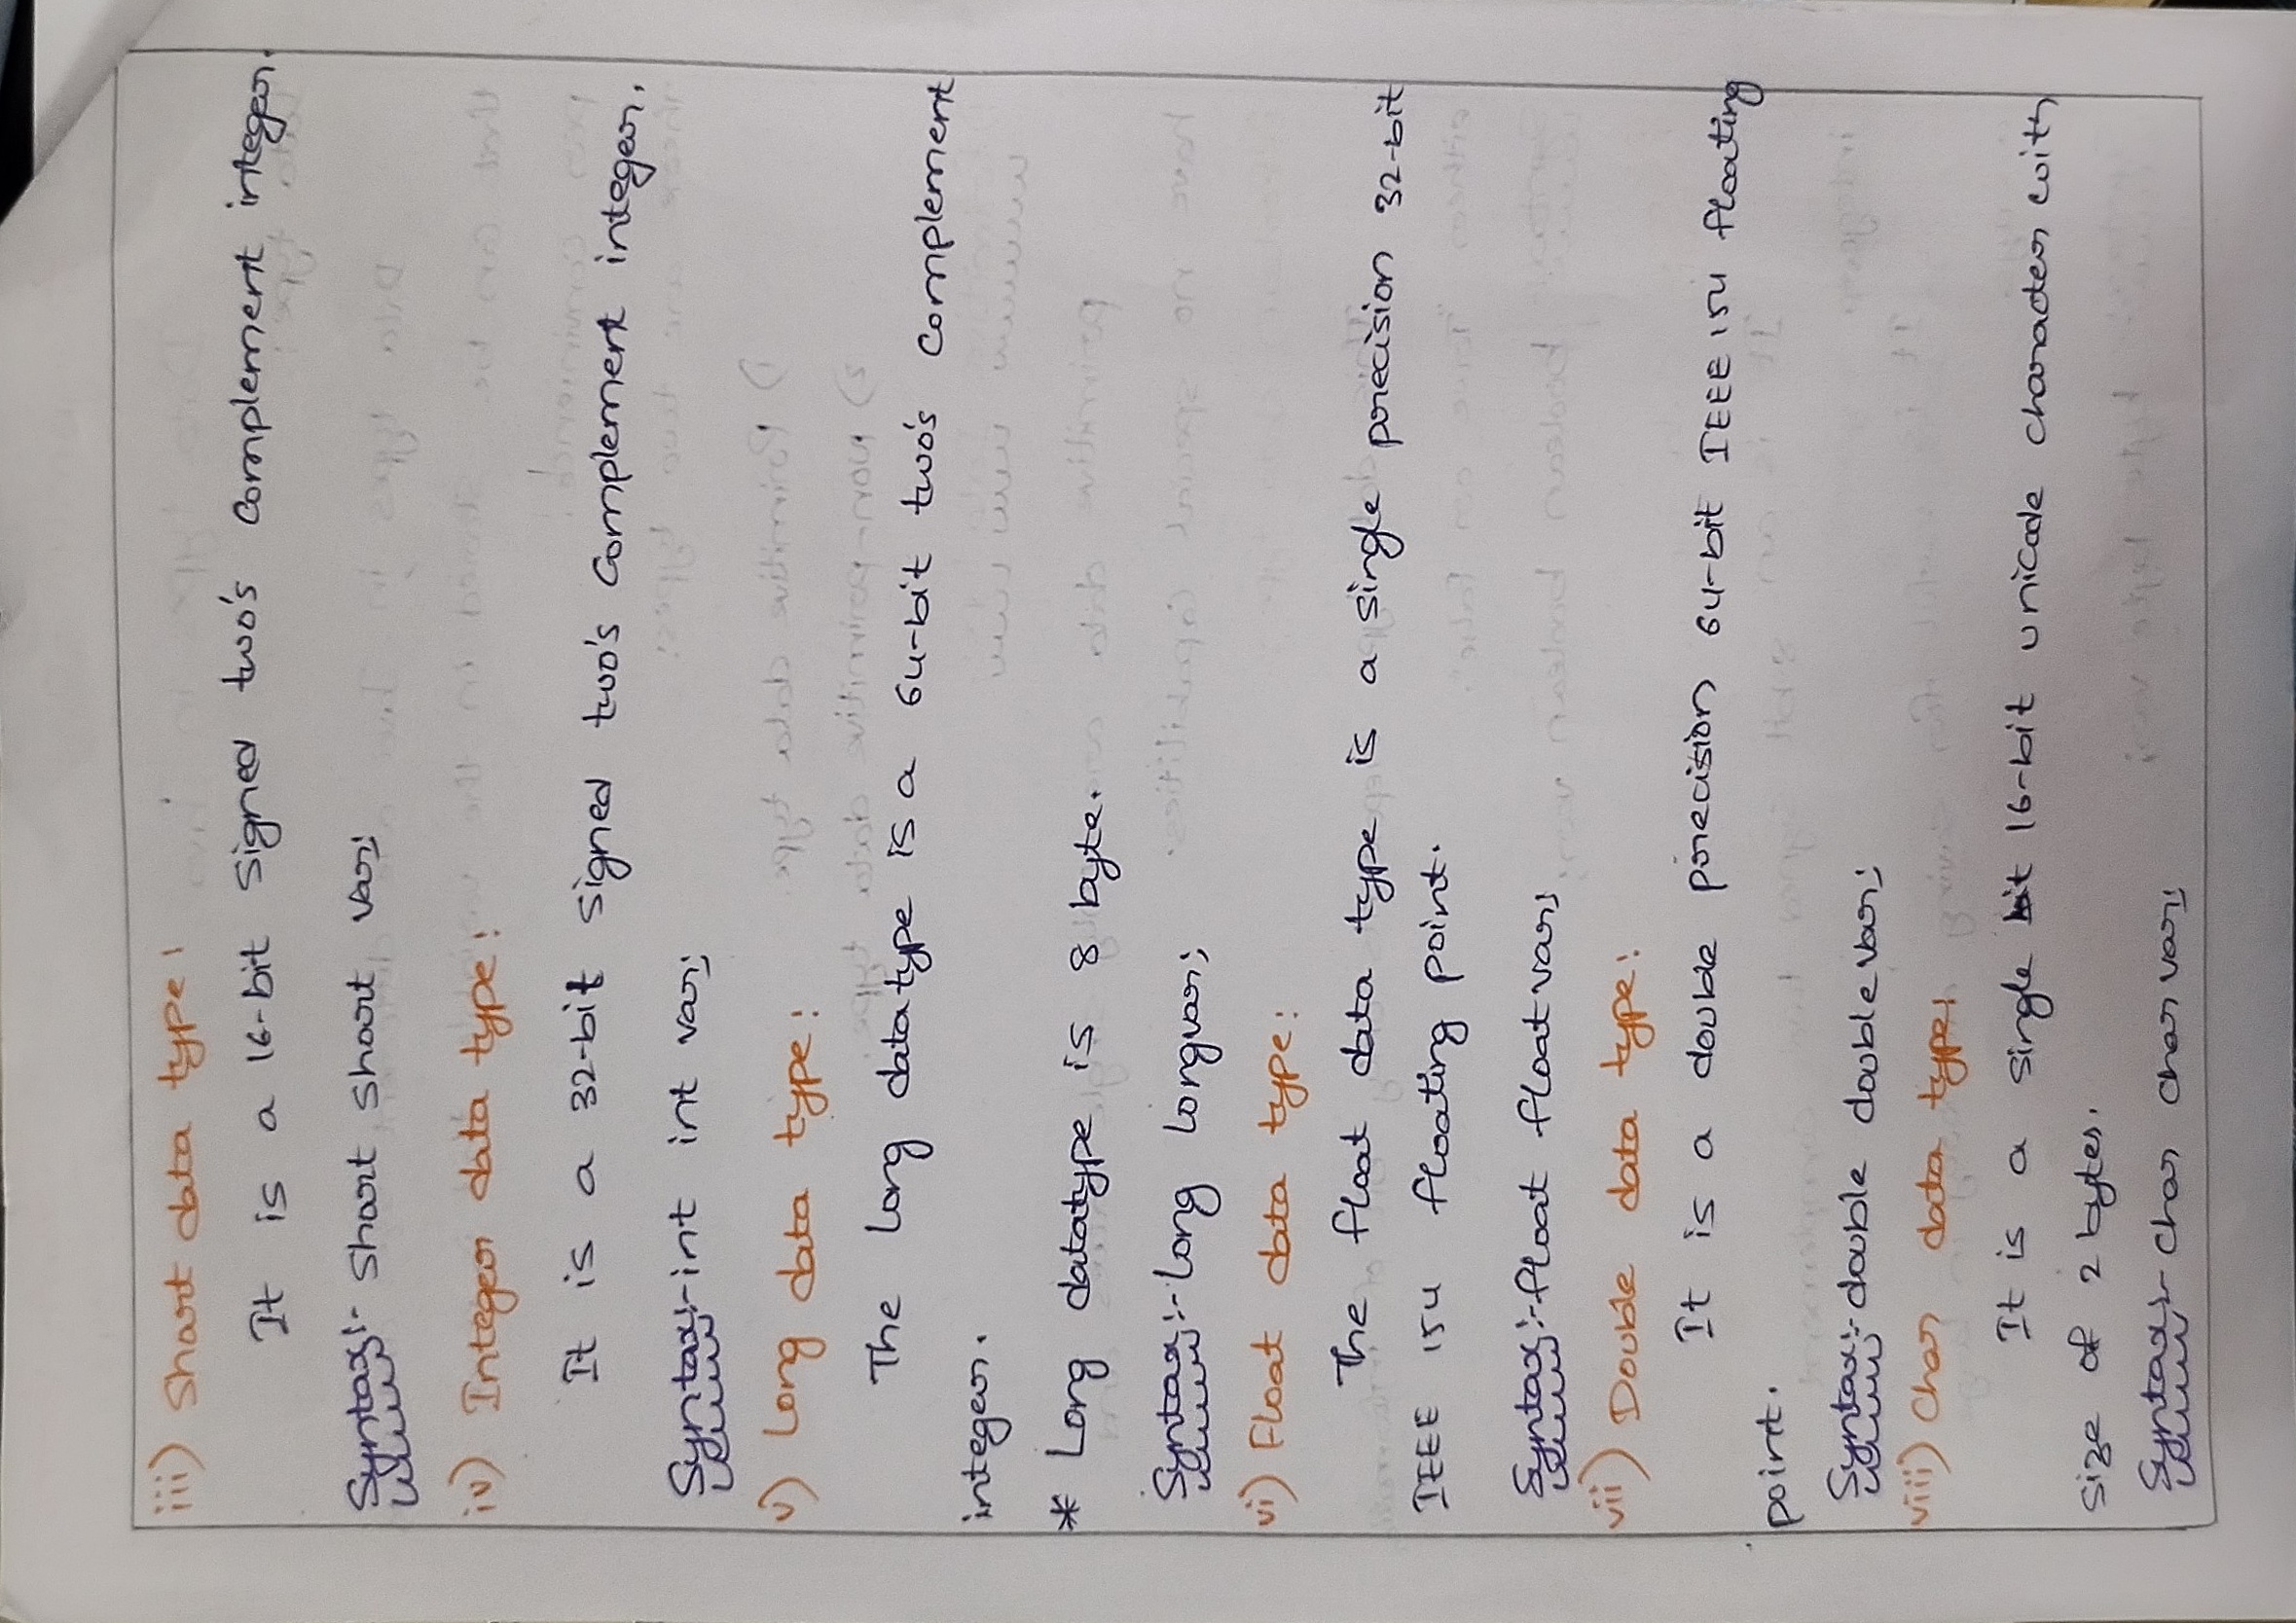 iii) Short data type:
It is a 16-bit signed two's complement integer.
Syntax:- short short var;
iv) Integer data type:
It is a 32-bit signed two's complement integer.
Syntax:- int int var;
v) Long data type:
The long data type is a 64-bit two's complement
integer.
* Long datatype is 8 byte.
Syntax:- long longvar;
vi) Float data type:
The float data type is a single precision 32-bit
IEEE 154 floating point.
Syntax:- float floatvar;
vii) Double data type:
It is a double precision 64-bit IEEE 154 floating
point.
Syntax:- double doublevar;
viii) Char data type:
It is a single bit 16-bit unicode character with
size of 2 bytes.
Syntax:- char char var;